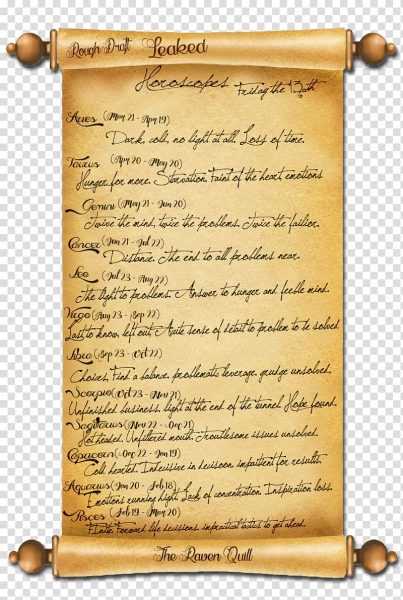 Rough Draft Leaked
Horoscopes Friday the 13th
Aries (May 21 - Apr 19)
Dark, cold, no light at all, Loss of time.
Taurus (Apr 20 - May 20)
Hunger for more, Starvation. Faint of the heart emotions
Gemini (May 21 - Jun 20)
Twice the mind, twice the problems. Twice the failior.
Cancer (Jun 21 - Jul 22)
Distance. The end to all problems near.
Leo (Jul 23 - Aug 22)
The light to problems. Answer to hunger and feeble mind.
Virgo (Aug 23 - Sep 22)
Last to know, left out. Acute sense of detail to problem to be solved
Libra (Sep 23 - Oct 22)
Choices, Find a balance, problematic leverage, grudge unsolved.
Scorpio (Oct 23 - Nov 21)
Unfinished business, light at the end of the tunnel. Hope found.
Sagittarius (Nov 22 - Dec 21)
Hot headed. Unfiltered mouth, Troublesome issues unsolved.
Capricorn (Dec 22 - Jan 19)
Cold hearted. Indecisive in decision, impatient for results.
Aquarius (Jan 20 - Feb 18)
Emotions running hight, Lack of concentration. Inspiration loss.
Pisces (Feb 19 - Mar 20)
Forward life decisions, impractical tactics to get ahead.
The Raven Quill